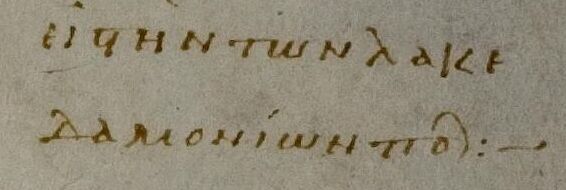 εἰς τὴν τῶν λακε
δαιμονίων πολ :—